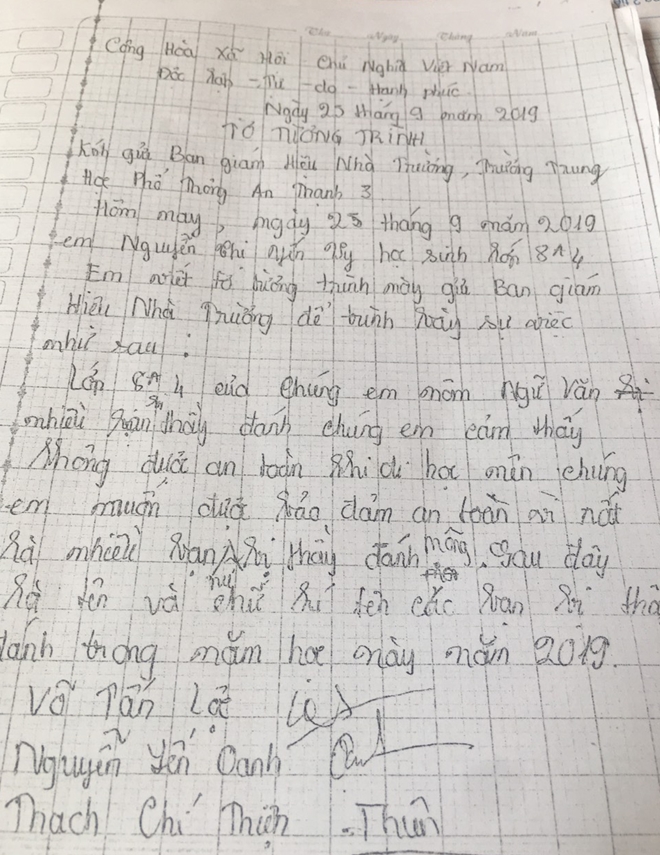 Thứ Ngày Tháng Năm
Cộng Hòa Xã Hội Chủ Nghĩa Việt Nam
Đôc lập - Tự - do - Hạnh phúc
Ngày 25 tháng 9 năm 2019
TỜ TƯỜNG TRÌNH
Kính gửi Ban giám Hiệu Nhà Trường, Trường Trung
Học Phổ Thông An Thạnh 3
Hôm nay, ngày 25 tháng 9 năm 2019
em Nguyễn Thi Yến học sinh lớp 8A4
Em viết tờ tường trình này gửi Ban giám
Hiệu Nhà Trường để trình bày sự việc
như sau :
Lớp 8A4 của chúng em môn Ngữ Văn
nhiều bạn thầy đánh chúng em cảm thấy
không được an toàn khi đi học nên chúng
em muốn được bảo đảm an toàn vì rất
là nhiều bạn bị thầy đánh mông. sau đây
là tên và chữ kí tên các bạn bị thầ
đánh trong năm học này năm 2019.
Võ Tấn Lộc Lộc
Nguyễn Yến Oanh
Thạch Chí Thiện Thiện